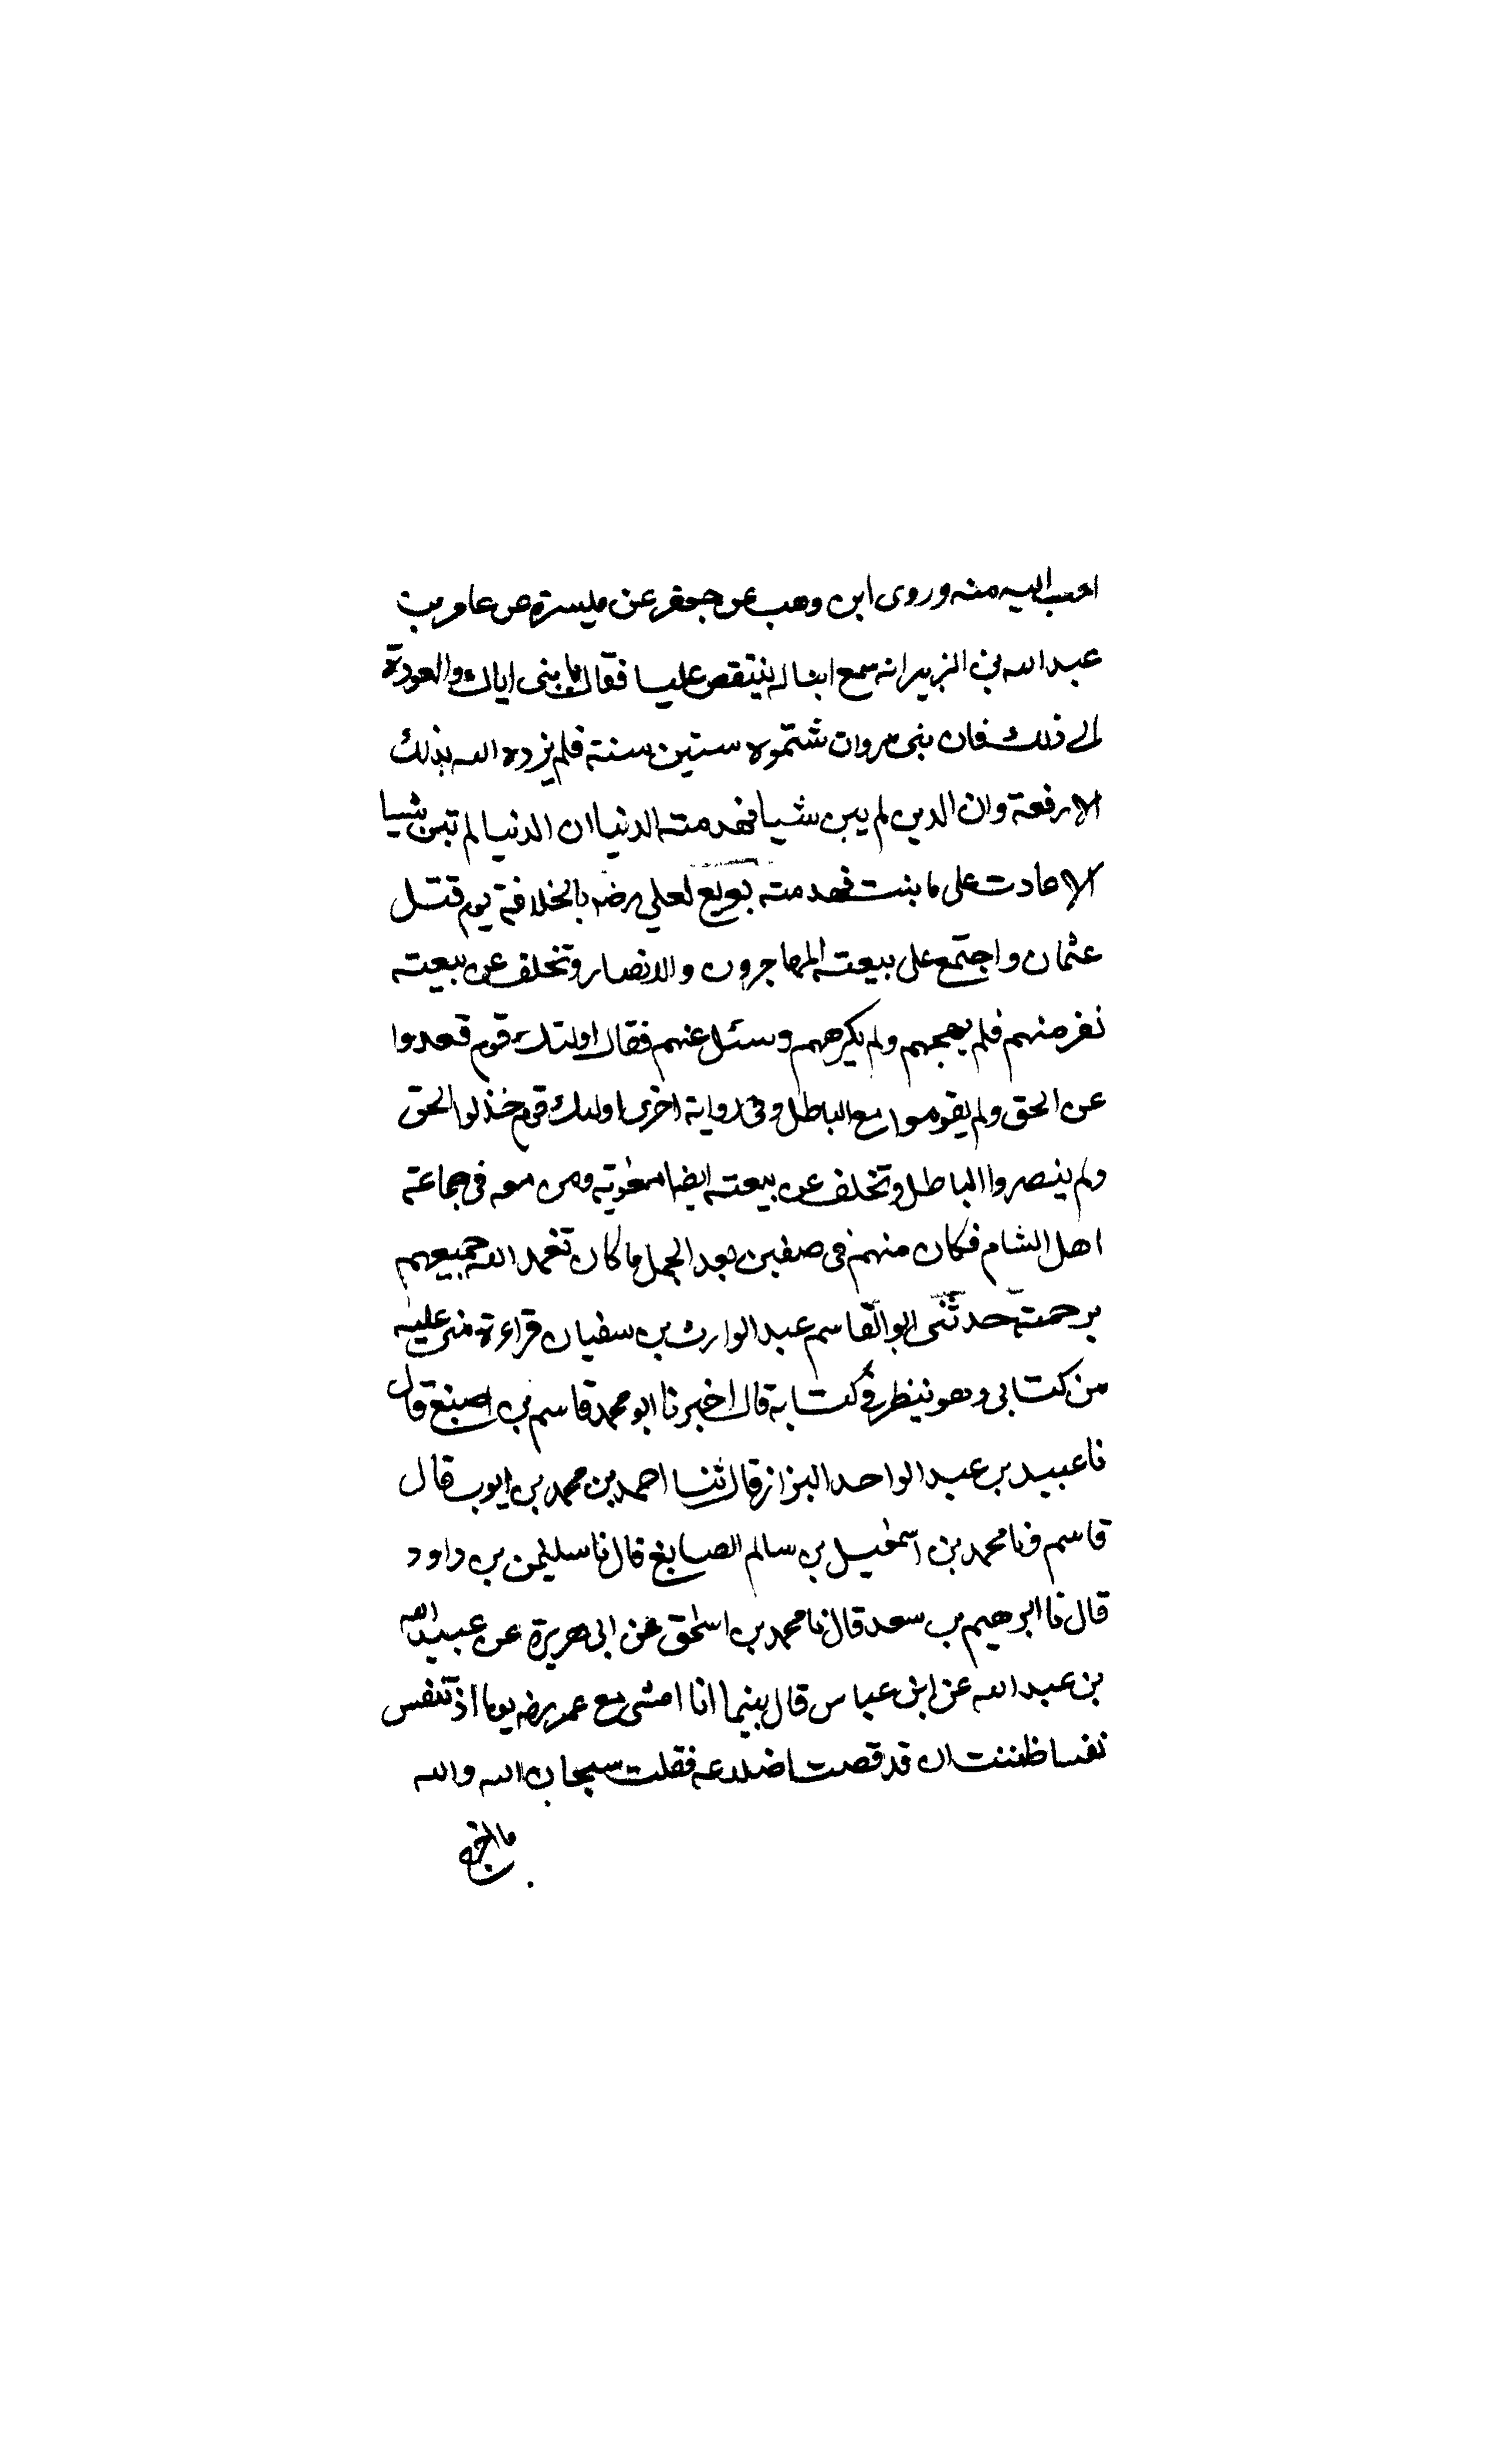 احب اليه منه وروى ابن وهب عن جعفر عن ميسرة عن عامر بن
عبد الله بن الزبير انه سمع ابنا له ينتقص عليا فقال يا بنى اياك والعودة
الى ذلك فان بنى مروان شتموه ستين سنة فلم يزده الله بذلك
الا رفعة وان الدين لم يبن شيا فهدمته الدنيا ان الدنيا لم تبن شيا
الا عادت على ما بنت فهدمته بويع لعلي رضه بالخلافة يوم قتل
عثمان واجتمع على بيعته المهاجرون والانصار وتخلف عن بيعته
نفر منهم فلم يهجهم ولم يكرههم وسئل عنهم فقال اولئك قوم قعدوا
عن الحق ولم يقوموا مع الباطل وفى رواية اخرى اولئك قوم خذلوا الحق
ولم ينصروا الباطل وتخلف عن بيعته ايضا معوية ومن معه فى جماعة
اهل الشام فكان منهم فى صفين بعد الجمل ما كان تغمد الله جميعهم
برحمته حدثنى ابو القاسم عبد الوارث بن سفيان قراءة منى عليه
من كتابى وهو ينظر فى كتابه قال اخبرنا ابو محمد قاسم بن اصبغ قال
نا عبيد بن عبد الواحد البزاز قال ثنا احمد بن محمد بن ايوب قال
قاسم ونا محمد بن اسمعيل بن سالم الصايغ قال نا سليمن بن داود
قال نا ابرهيم بن سعد قال نا محمد بن اسحق عن ابى هريرة عن عبيد الله
بن عبد الله عن ابن عباس قال بينما انا امشى مع عمر رضه يوما اذ تنفس
نفسا ظننت ان قد قصت اضلاعه فقلت سبحان الله والله
ما اخرج